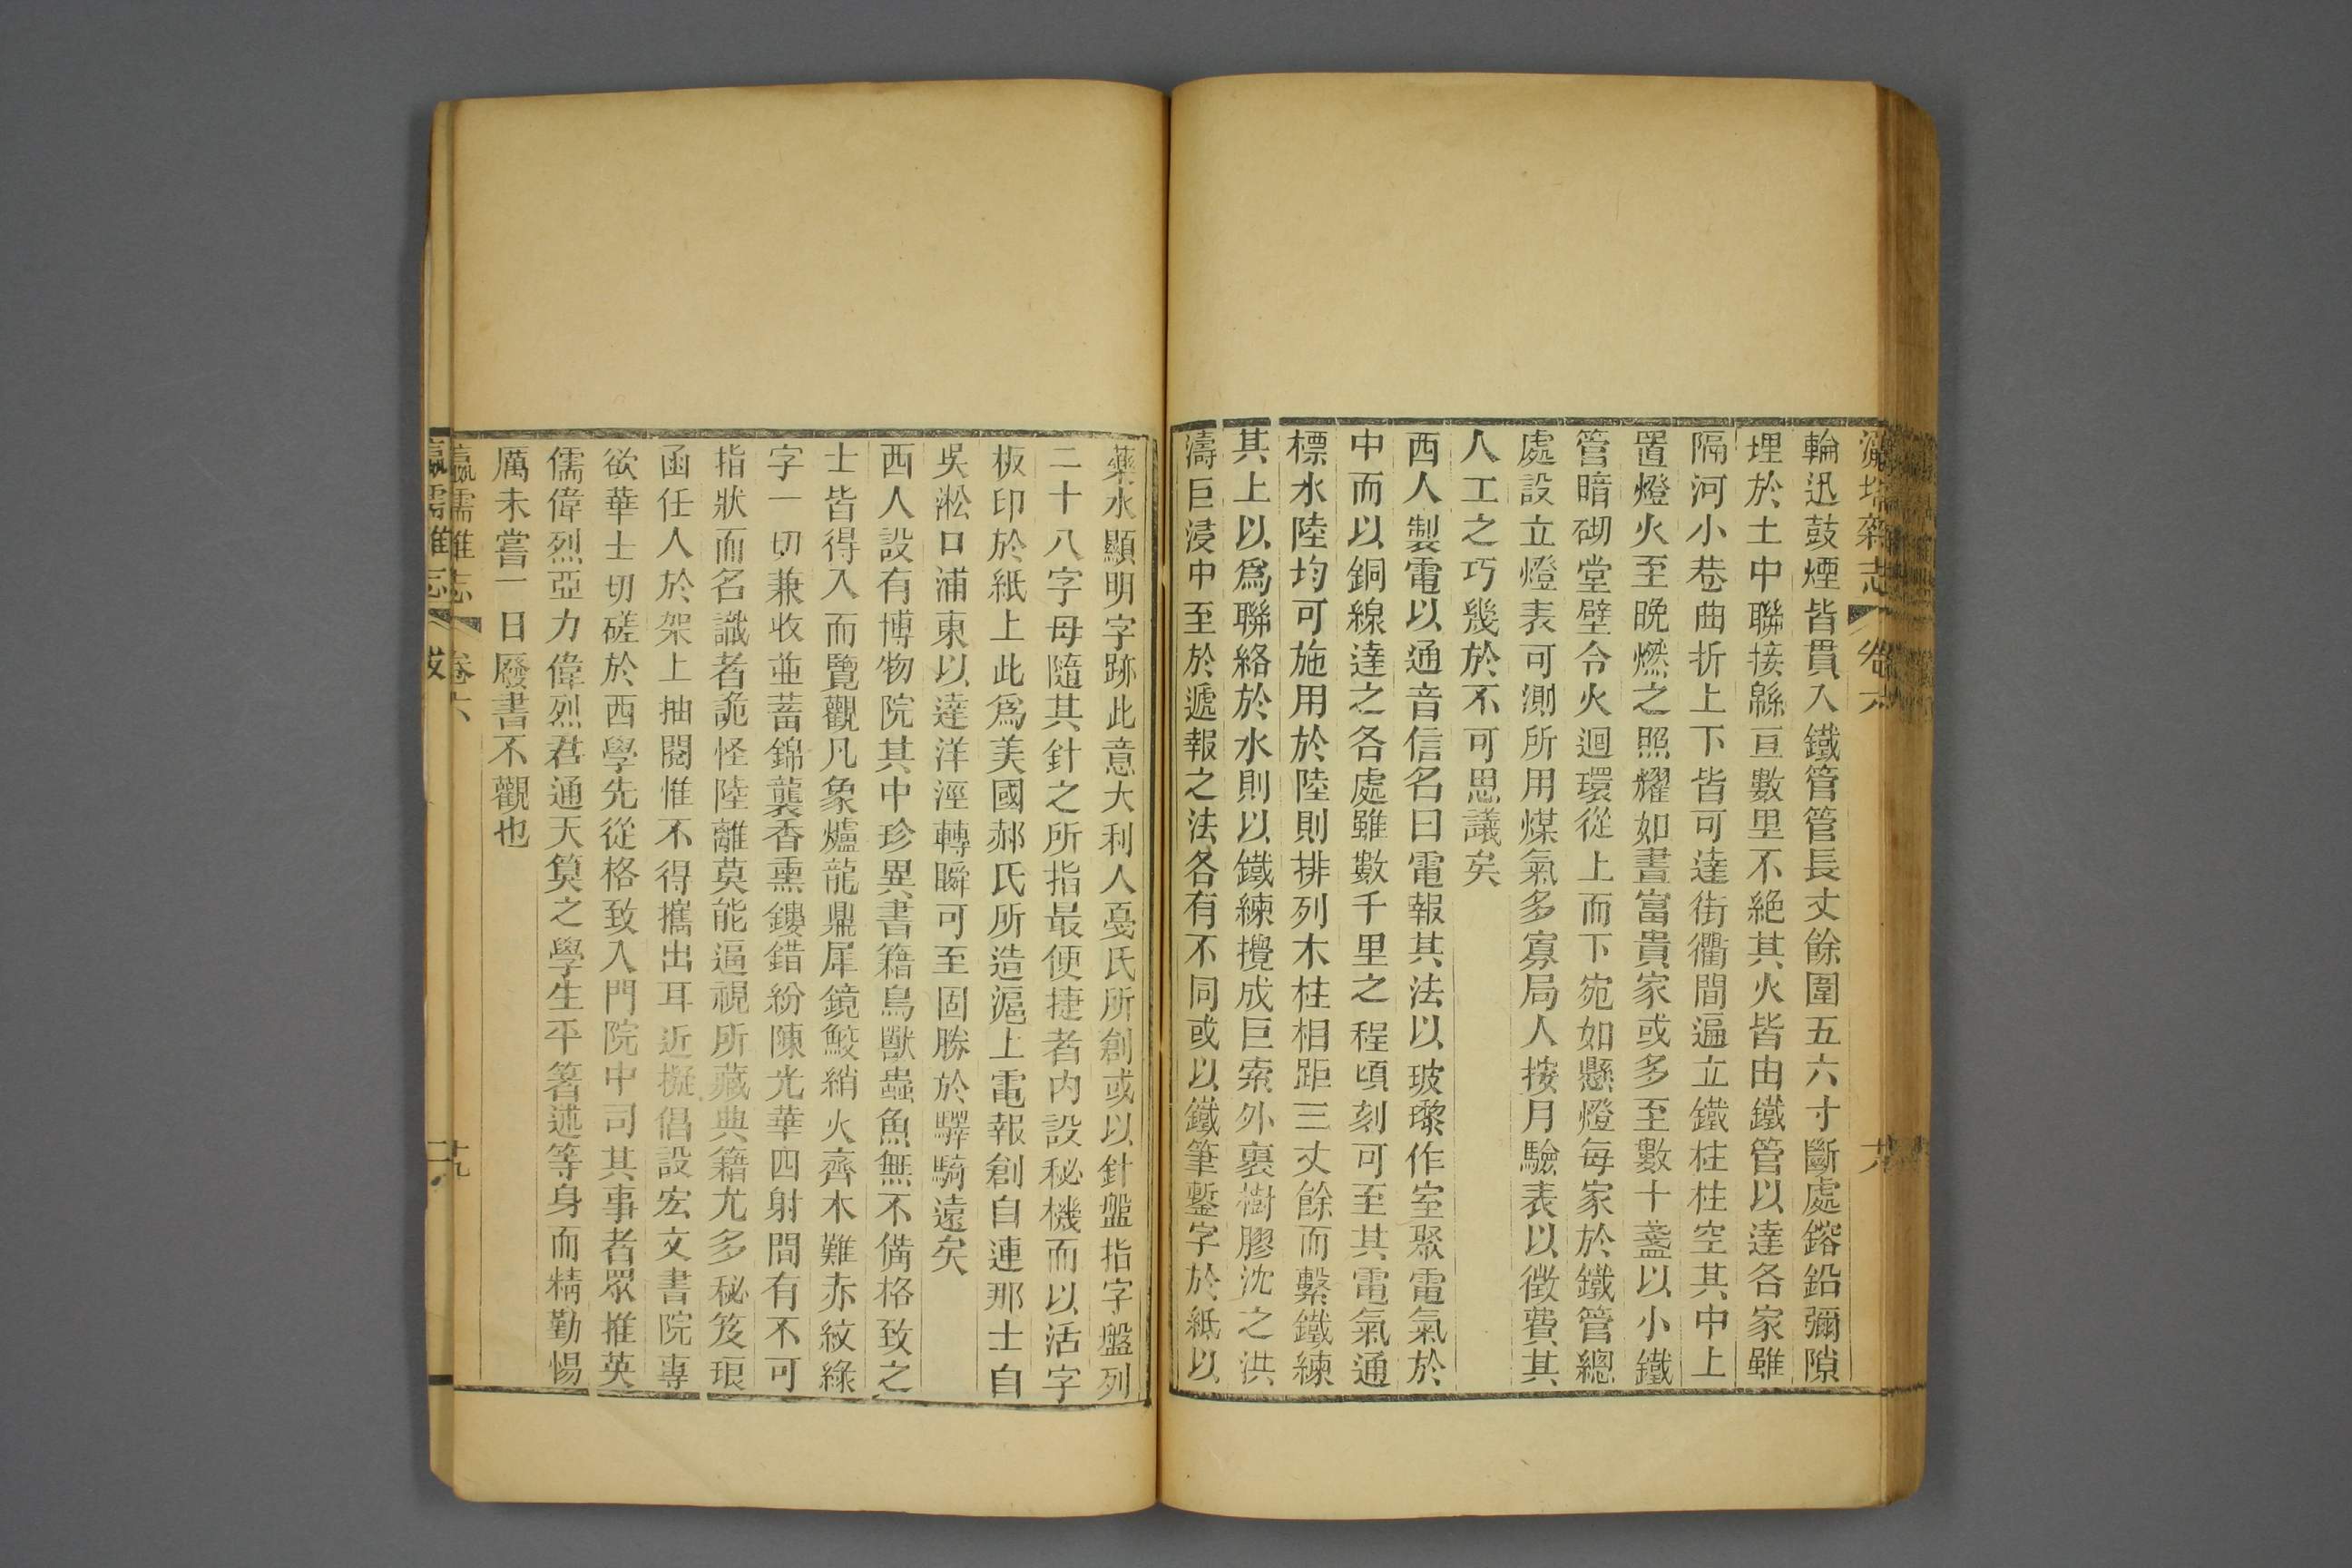 瀛壖雜志 卷六 十八
輪迅鼓煙皆貫入鐵管管長丈餘圍五六寸斷處鎔鉛彌隙
埋於土中聯接緜亘數里不絕其火皆由鐵管以達各家雖
隔河小巷曲折上下皆可達街衢間遍立鐵柱柱空其中上
置燈火至晚燃之照耀如晝富貴家或多至數十盞以小鐵
管暗砌堂壁令火迴環從上而下宛如懸燈每家於鐵管總
處設立燈表可測所用煤氣多寡局人按月驗表以徵費其
人工之巧幾於不可思議矣
西人製電以通音信名曰電報其法以玻瓈作室聚電氣於
中而以銅線達之各處雖數千里之程頃刻可至其電氣通
標水陸均可施用於陸則排列木柱相距三丈餘而繫鐵練
其上以為聯絡於水則以鐵練攪成巨索外裹樹膠沈之洪
濤巨浸中至於遞報之法各有不同或以鐵筆鏨字於紙以
藥水顯明字跡此意大利人戞氏所創或以針盤指字盤列
二十八字母隨其針之所指最便捷者內設秘機而以活字
板印於紙上此為美國郝氏所造滬上電報創自連那士自
吳淞口浦東以達洋涇轉瞬可至固勝於驛騎遠矣
西人設有博物院其中珍異書籍鳥獸蟲魚無不備格致之
士皆得入而覽觀凡象爐龍鼎犀鏡鮫綃火齊木難赤紋綠
字一切兼收並蓄錦襲香熏鏤錯紛陳光華四射間有不可
指狀而名識者詭怪陸離莫能逼視所藏典籍尤多秘笈琅
函任人於架上抽閱惟不得攜出耳近擬倡設宏文書院專
欲華士切磋於西學先從格致入門院中司其事者眾推英
儒偉烈亞力偉烈君通天算之學生平箸述等身而精勤惕
厲未嘗一日廢書不觀也
瀛壖雜志 卷六 十九